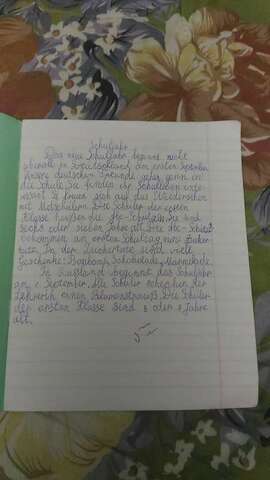 Schuljahr
Das neue Schuljahr beginnt nicht
überall in Deutschland am ersten September.
Unsere deutschen Freunde gehen gern in
die Schule. Sie finden ihr Schulleben inte-
ressant. Sie freuen sich auf das Wiedersehen
mit Mitschülern. Die Schüler der ersten
Klasse heißen die ABC-Schützen. Sie sind
sechs oder sieben Jahre alt. Die ABC-Schütz
bekommen am ersten Schultag eine Zucker-
tüte. In der Zuckertüte sind viele
Geschenke: Bonbons, Schokolade, Marmelade.
In Russland beginnt das Schuljahr
am 1. September. Die Schüler
Lehrerin einen Blumenstrauß. Die Schüler
der ersten Klasse sind oder Jahre
alt.